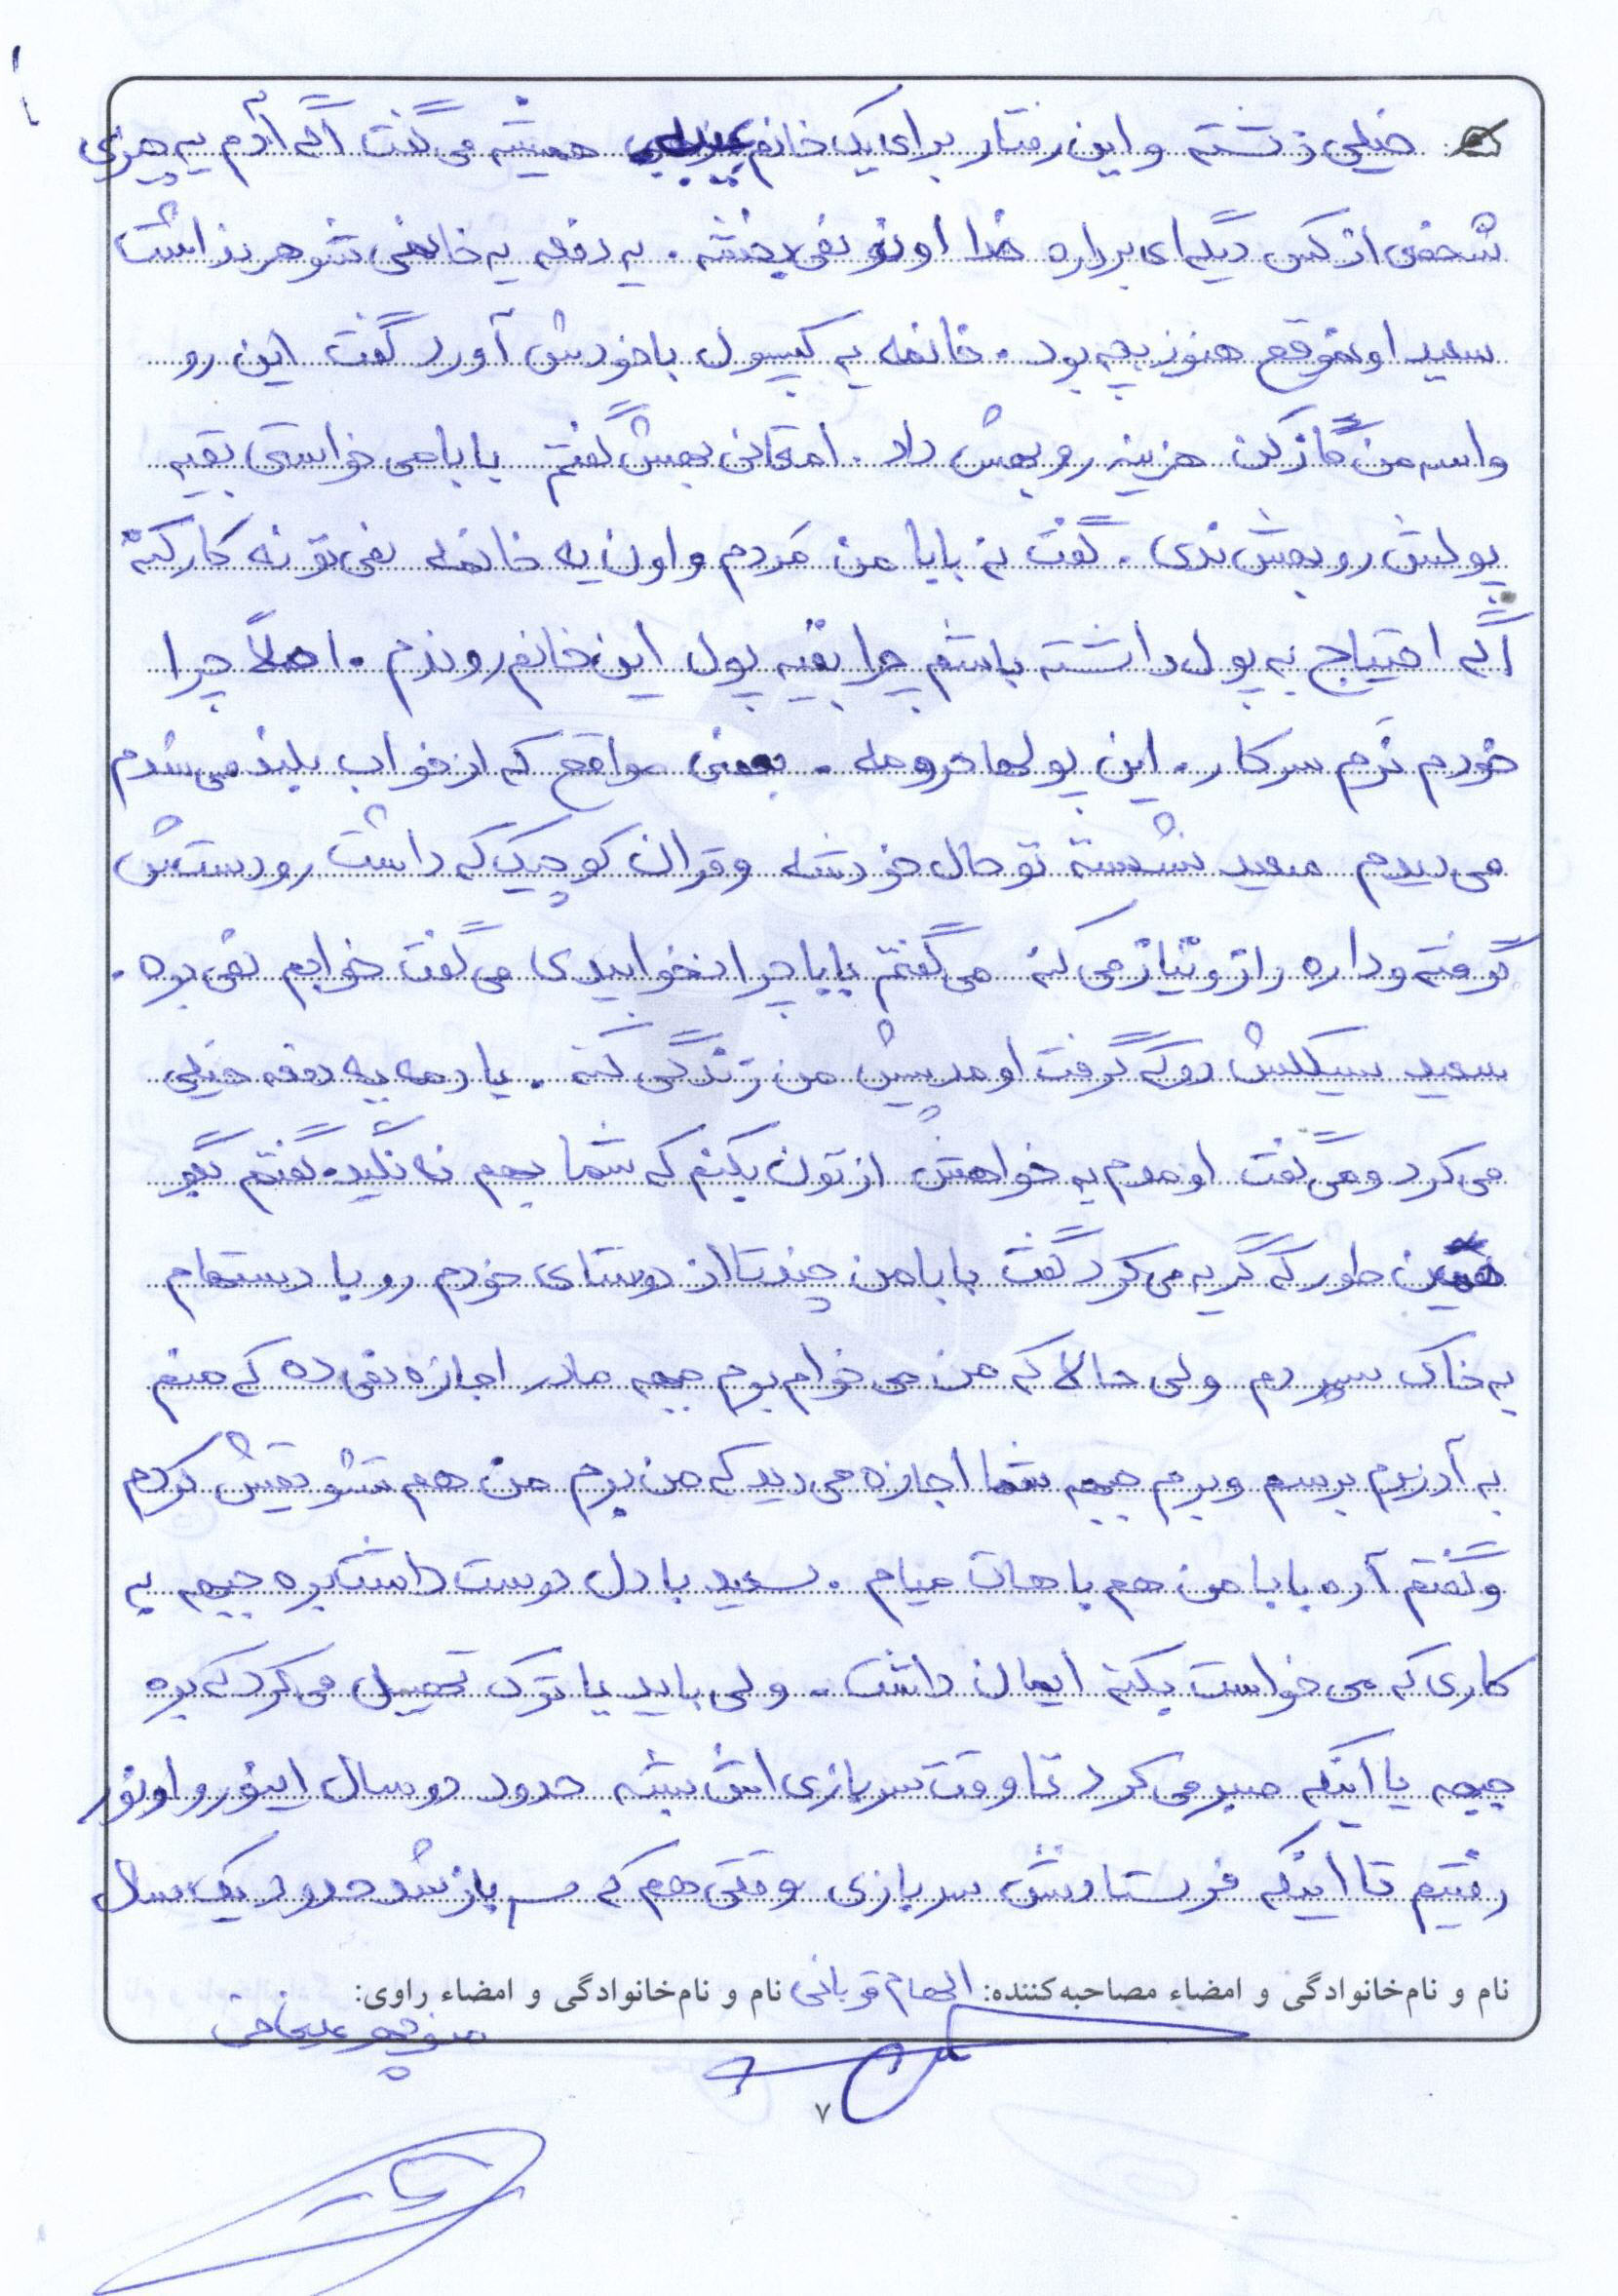 خیلی زشته و این رفتار برای یک خانم همیشه می گفت اگه آدم یه چیزی
شخصی از کس دیگه ای برداره خدا اونو نمی بخشه . یه دفعه یه خانمی شوهر نداشت
سعید اونموقع هنوز بچه بود . خانمه یه کپسول با خودش آورد گفت این رو
واسه من گاز کن هزینه رو بهش داد . امتحانی بهش گفتم بابا می خواستی بقیه
پولش رو بهش ندی . گفت نه بابا من مَردم و اون یه خانمه نمی تونه کار کنه
اگه احتیاج به پول داشته باشم چرا بقیه پول این خانم رو ندم . اصلاً چرا
خودم نرم سر کار . این پولها حرومه . بعضی مواقع که از خواب بلند می شدم
می دیدم سعید نشسته تو حال خودشه و قران کوچیک که داشت رو دستش
گرفته و داره راز و نیاز می کنه می گفتم بابا چرا نخوابیدی می گفت خوابم نمی بره .
سعید سیکلش رو که گرفت اومد پیش من زندگی کنه . یادمه یه دفعه خیلی
می کرد و می گفت اومدم یه خواهش ازتون بکنم که شما بهم نه نگید . گفتم بگو
همین طور که گریه می کرد گفت بابا من چند تا از دوستای خودم رو با دستهام
به خاک سپردم ولی حالا که من می خوام برم جبهه مادر اجازه نمی ده که منم
به آرزوم برسم و برم جبهه شما اجازه می دید که من برم من هم تشویقش کردم
و گفتم آره بابا من هم باهات میام . سعید با دل دوست داشت بره جبهه به
کاری که می خواست بکنه ایمان داشت . ولی باید یا ترک تحصیل می کرد که بره
جبهه یا اینکه صبر می کرد تا وقت سربازی اش بشه حدود دو سال اینور و اونور
رفتیم تا اینکه فرستادنش سربازی وقتی هم که سرباز شد حدود یک سال
نام و نام‌خانوادگی و امضاء مصاحبه‌کننده: الهام قربانی نام و نام‌خانوادگی و امضاء راوی:
منوچهر علیخانی
۷